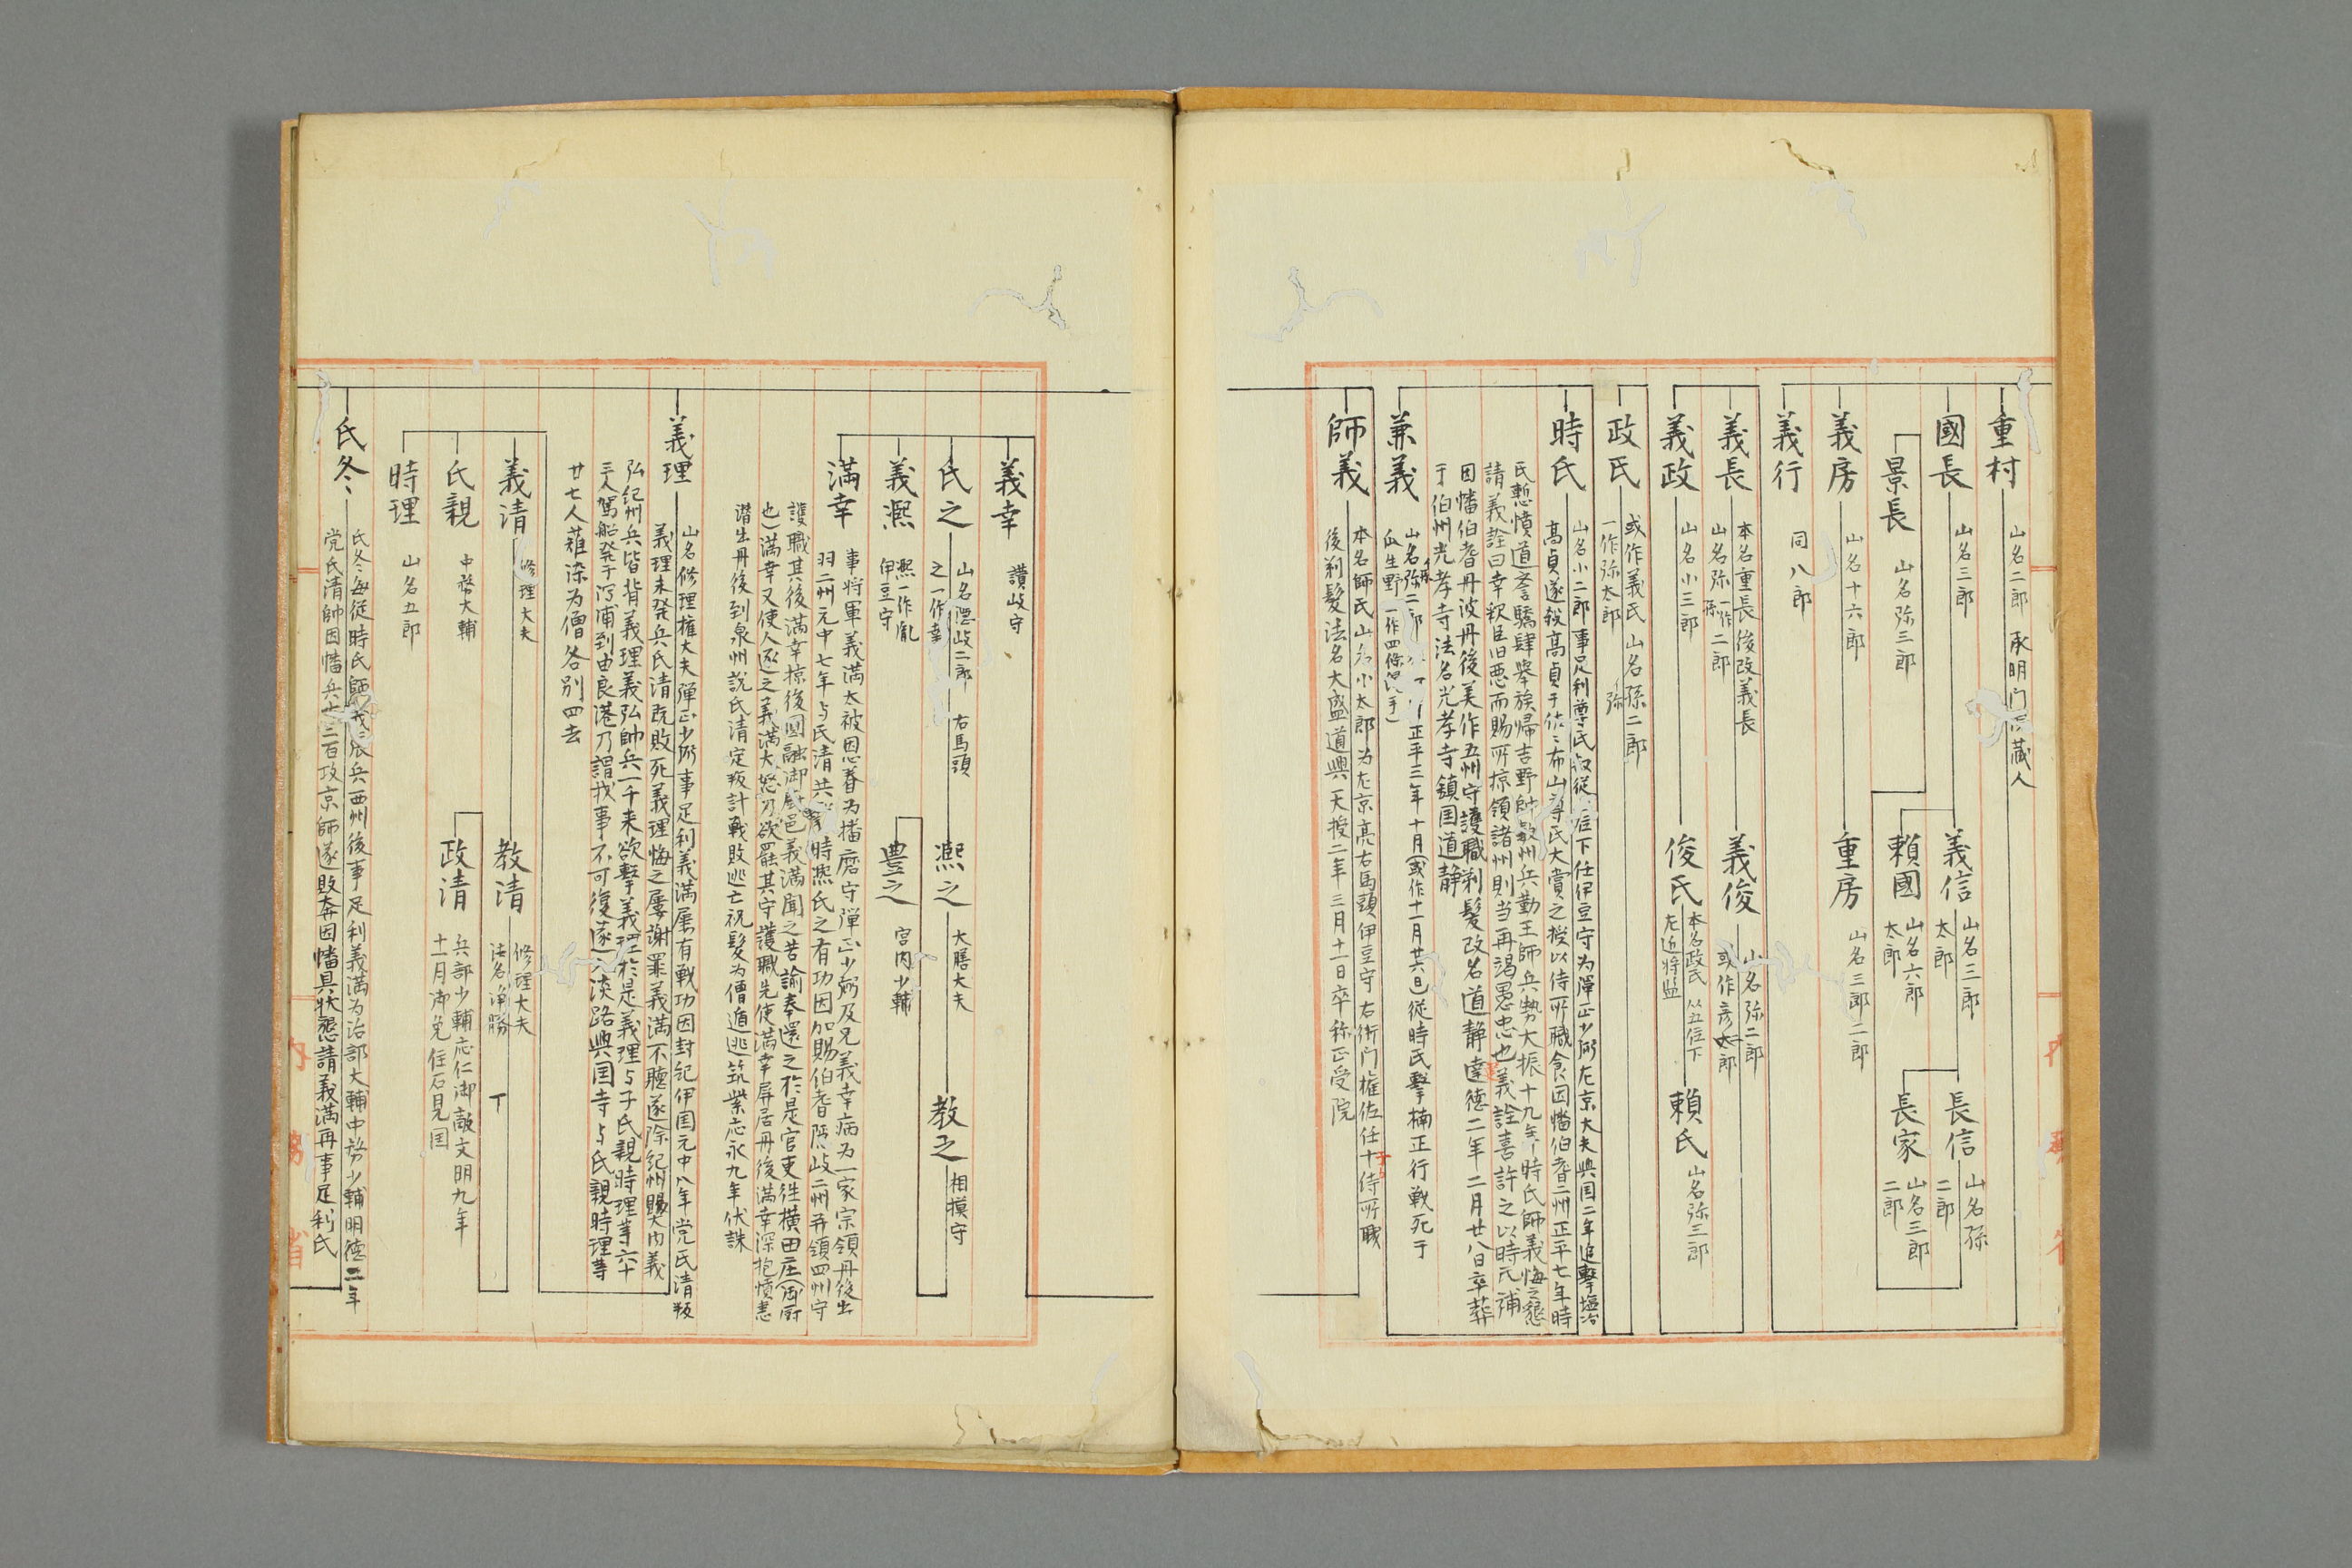 重村
山名二郎 承明門 蔵人
國長
山名三郎
義信
山名三郎
太郎
長信
山名孫
二郎
賴國
山名六郎
太郎
長家
山名三郎
二郎
景長
山名弥三郎
義房
山名十六郎
重房
山名三郎二郎
義行
同八郎
義長
本名重長後改義長
山名弥一作孫二郎
義俊
山名弥二郎
或作彦太郎
義政
山名小三郎
俊氏
本名政氏 从五位下
左近将監
賴氏
山名弥三郎
政氏
或作義氏 山名孫二郎
一作弥太郎 弥
時氏
山名小二郎事足利尊氏叙從 位下任伊豆守为彈正少弼左京大夫興国二年追擊塩冶
高貞遂殺高貞于佐〻布山尊氏大賞之授以侍所職食因幡伯耆二州正平七年時
氏慙憤道誉驕肆舉族帰吉野帥 州兵勤王師兵勢大振十九年時氏師義悔之懇
請義詮曰幸釈臣旧悪而賜所掠領諸州則当再竭愚忠也義詮喜許之以時氏補
因幡伯耆丹波丹後美作五州守護職剃髪改名道静建德二年二月廿八日卒葬
于伯州光孝寺法名光孝寺鎮国道静
兼義
山名弥二郎 正平三年十月(或作十一月廿六日)從時氏擊楠正行戦死于
瓜生野(一作四條 手)
師義
本名師氏山名小太郎为左京亮右馬頭伊豆守右衛门権佐任十侍所職
後剃髪法名大盛道興天授二年三月十一日卒称正受院
義幸
讃岐守
氏之
山名隠岐二郎 右馬頭
之一作幸
熙之
大膳大夫
教之
相摸守
義熙
熙一作胤
伊豆守
豊之
宮内少輔
満幸
事将軍義満太被恩眷为播磨守彈正少弼及兄義幸病为一家宗領丹後出
羽二州元中七年与氏清共 時熙氏之有功因加賜伯耆隠岐二州并領四州守
護職其後満幸掠後圓融御厨邑義満聞之苦諭奉還之於是官吏徃横田庄(御厨
也)満幸又使人逐之義満大怒乃欲罷其守護職先使満幸屏居丹後満幸深抱憤恚
潜出丹後到泉州説氏清定叛計戦敗逃亡祝髪为僧遁逃筑紫応永九年伏誅
義理
山名修理権大夫彈正少弼事足利義満屢有戦功因封紀伊国元中八年党氏清叛
義理未発兵氏清既敗死義理悔之屢謝罪義満不聴遂除紀州賜大内義
弘紀州兵皆背義理義弘帥兵一千来欲擊義理於是義理与子氏親時理等六十
三人駕船発于 浦到由良港乃謂我事不可復遂入淡路興国寺与氏親時理等
廿七人薙染为僧各別四去
義清
修理大夫
教清
修理大夫
法名浄勝
氏親
中務大輔
政清
兵部少輔応仁御敵文明九年
十一月御免住石見国
時理
山名五郎
氏冬
氏冬毎從時氏師義 兵西州後事足利義満为治部大輔中務少輔明徳二年
党氏清帥因幡兵 三百攻京師遂敗奔因幡具状懇請義満再事足利氏
内務省
内務省